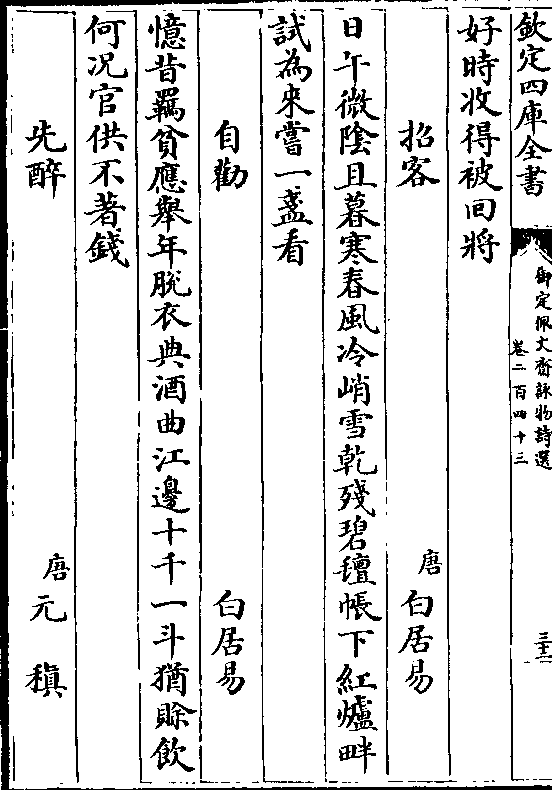 欽定四庫全書
御定佩文齋詠物詩選
卷二百四十三
三十二
好時收得被回將
招客
唐白居易
日午微陰且暮寒春風冷峭雪乾殘碧氊帳下紅爐畔
試為來嘗一盞看
自勸
白居易
憶昔羈貧應舉年脫衣典酒曲江邊十千一斗猶賒飲
何况官供不著錢
先醉
唐元稹